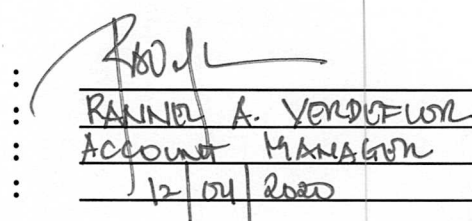 :
: RANNEL A. VERDEFLOR
: ACCOUNT MANAGER
: 12 | 04 | 2020